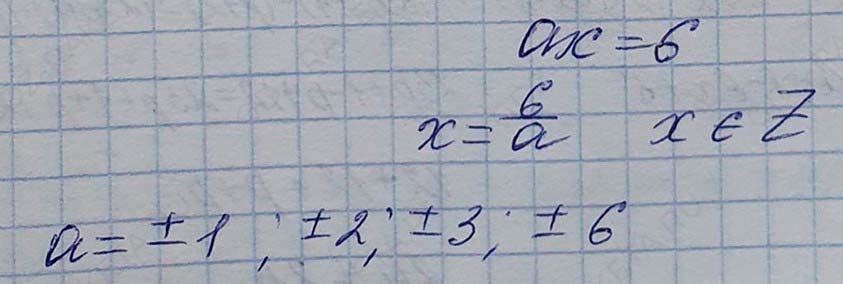 ax = 6
x = 6/a x ∈ Z
a = ± 1 ; ± 2; ± 3; ± 6